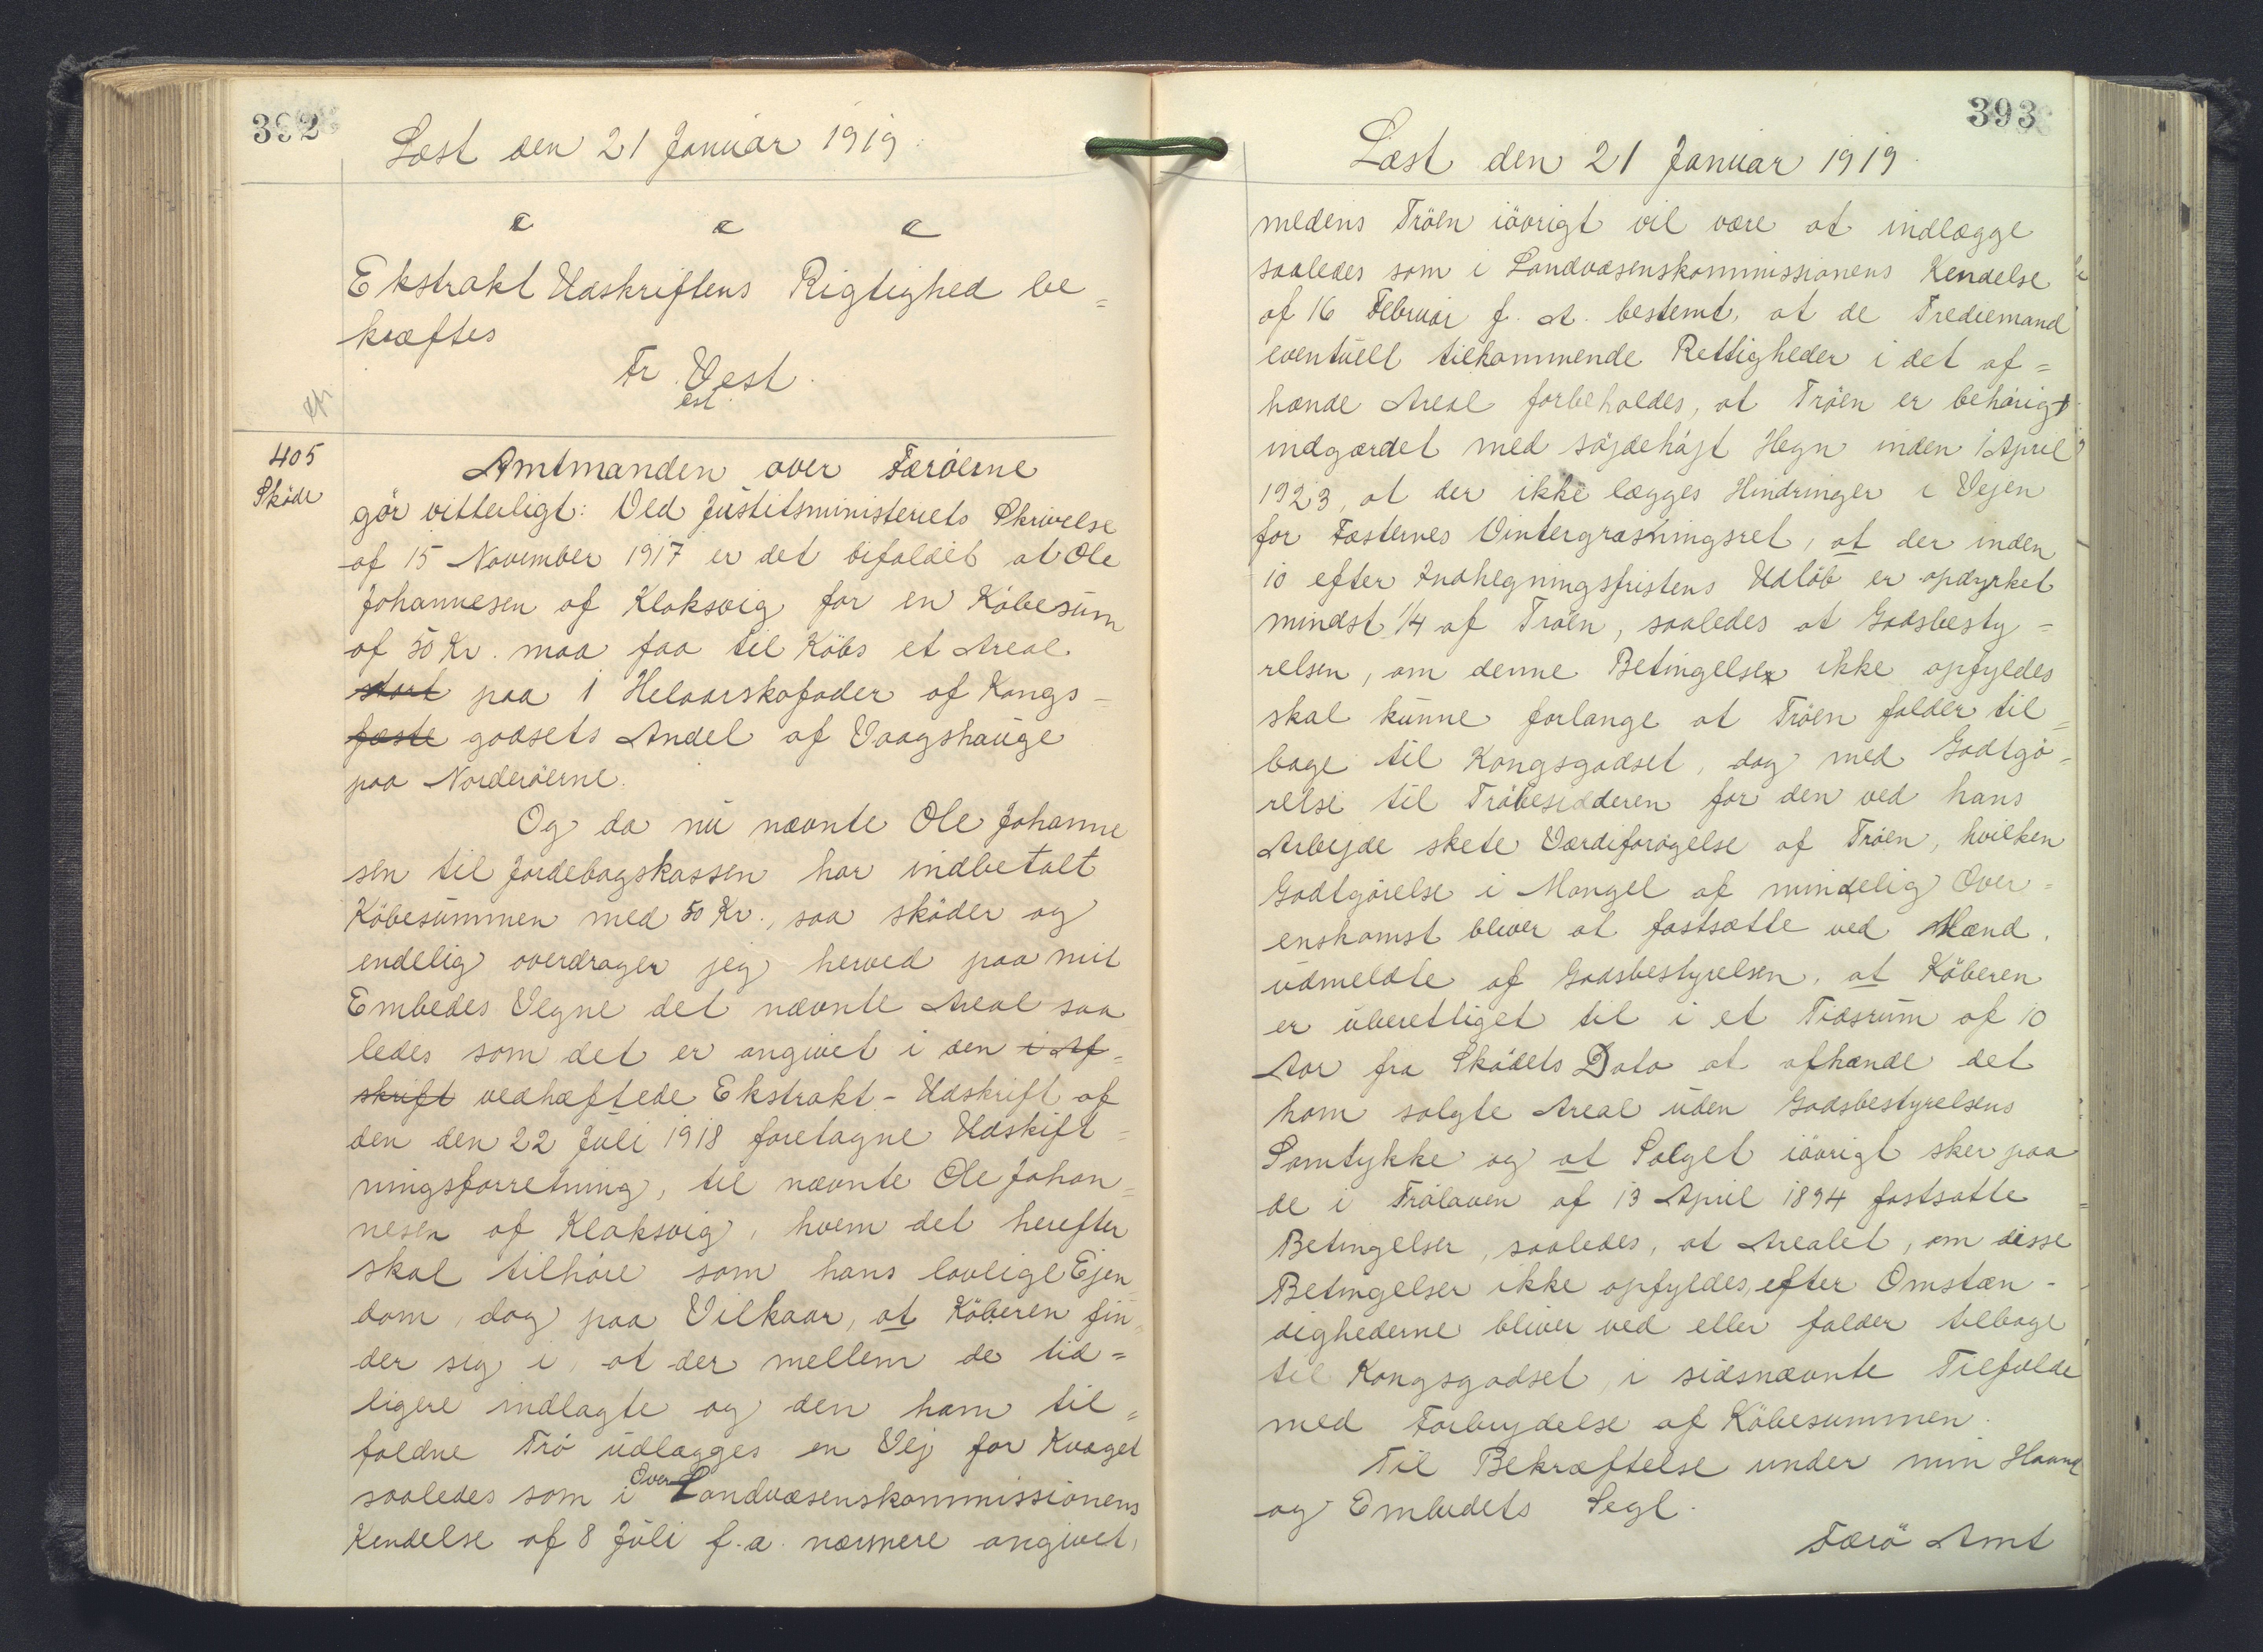 392
Læst den 21 Januar 1919.
Ekstrakt Udskriftens Rigtighed be=
kræftes
Fr. Vest.
est
405
Skøde
Amtmanden over Færöerne
gör vitterligt: Ved Justitsministeriets Skrivelse
af 15 November 1917 er det bifaldet at Ole
Johannesen af Klaksvig for en Köbesum
af 50 Kr. maa faa til Köbs et Areal
stort paa 1 Helaarskofoder af Kongs=
fæste godsets Andel af Vaagshauge
paa Norderöerne.
Og da nu nævnte Ole Johanne
sen til Jordebogskassen har indbetalt
Köbesummen med 50 Kr., saa sköder og
endelig overdrager jeg herved paa mit
Embedes Vegne det nævnte Areal saa
ledes som det er angivet i den i Af=
skrift vedhæftede Ekstrakt-Udskrift af
den den 22 Juli 1918 foretagne Udskift=
ningsforretning, til nævnte Ole Johan=
nesen af Klaksvig, hvem det herefter
skal tilhöre som hans lovlige Ejen
dom, dog paa Vilkaar, at Köberen fin
der sig i, at der mellem de tid=
ligere indlagte og den ham til=
faldne Trö udlægges en Vej for Kvæget
saaledes som i Over Landvæsenskommissionens
Kendelse af 8 Juli f.a. nærmere angivet,
393
Læst den 21 Januar 1919.
medens Tröen iövrigt vil være at indlægge
saaledes som i Landvæsenskommissionens Kendelse
af 16 Februar f. A. bestemt, at de Trediemand
eventuelt tilkommende Rettigheder i det af=
hænde Areal forbeholdes, at Tröen er behörigt
indgærdet med söjdehöjt Hegn inden 1 April
1923, at der ikke lægges Hindringer i Vejen
for Fæsternes Vintergræsningsret, at der inden
10 efter Indhegningsfristens Udlöb er opdyrket
mindst 1/4 af Tröen, saaledes at Godsbesty=
relsen, om denne Betingelse ikke opfyldes
skal kunne forlange at Tröen falder til=
bage til Kongsgodset, dog med Godtgö=
relse til Tröbesidderen for den ved hans
Arbejde skete Værdiforögelse af Tröen, hvilken
Godtgörelse i Mangel af mindelig Over=
enskomst bliver at fastsætte ved Mænd,
udmeldte af Godsbestyrelsen, at Köberen
er uberettiget til i et Tidsrum af 10
Aar fra Sködets Dato at afhænde det
ham solgte Areal uden Godsbestyrelsens
Samtykke og at Salget iövrigt sker paa
de i Trölaven af 13 April 1894 fastsatte
Betingelser, saaledes, at Arealet, om disse
Betingelser ikke opfyldes, efter Omstæn-
dighederne bliver ved eller falder tilbage
til Kongsgodset, i sidsnævnte Tilfælde
med Forbrydelse af Köbesummen.
Til Bekræftelse under min Haand
og Embedets Segl.
Færö Amt